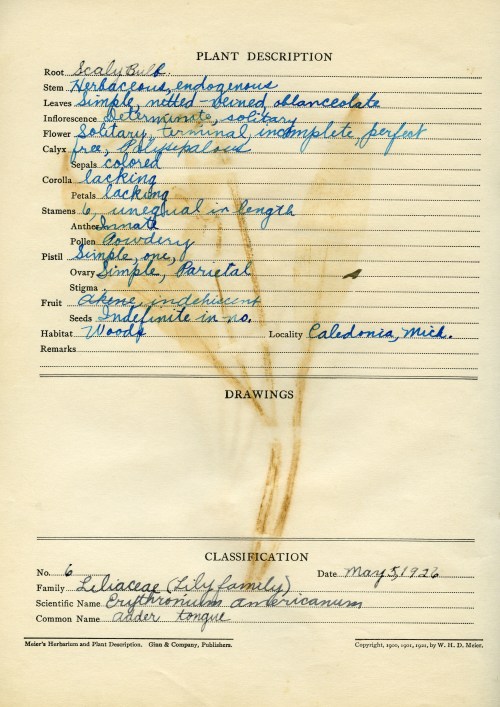 PLANT DESCRIPTION
Root Scaly Bulb.
Stem Herbaceous, endogenous
Leaves Simple, netted-veined, oblanceolate
Inflorescence Determinate, solitary
Flower Solitary, terminal, incomplete, perfect
Calyx free, Polysepalous
Sepals colored
Corolla lacking
Petals lacking
Stamens 6, unequal in length
Anther Innate
Pollen Powdery
Pistil Simple, one,
Ovary Simple, Parietal
Stigma
Fruit Akene, indehiscent
Seeds Indefinite in no.
Habitat Woods Locality Caledonia, Mich.
Remarks
DRAWINGS
CLASSIFICATION
No. 6 Date May 5, 1926
Family Liliaceae (Lily family)
Scientific Name Erythronium americanum
Common Name adder tongue
Meier's Herbarium and Plant Description. Ginn & Company, Publishers. Copyright, 1900, 1901, 1921, by W. H. D. Meier.